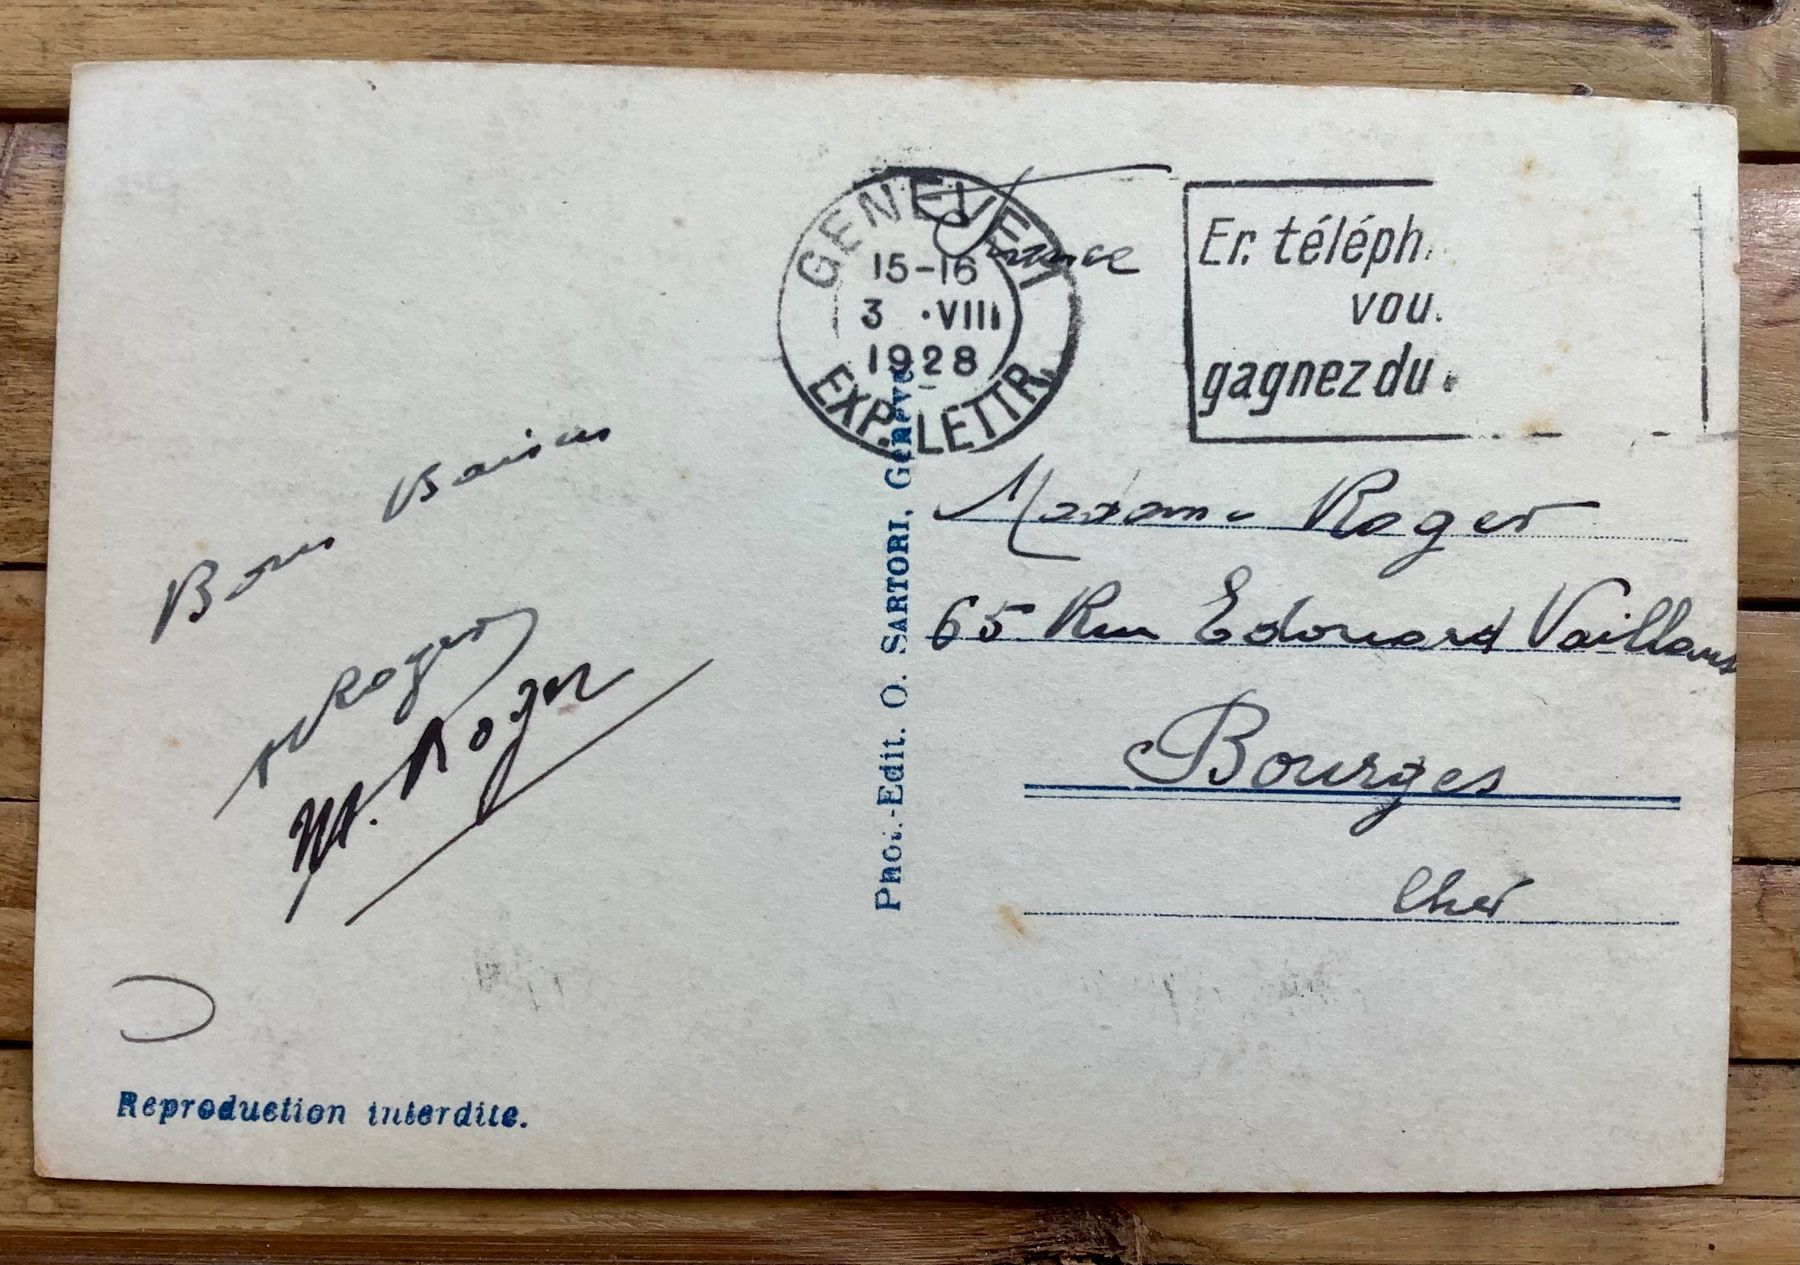 GENÈVE 1
15-16
3 ·VIII
1928
EXP. LETTR.
France
En téléph
vou
gagnez du
Bons Baisers
Roger
M. Roger
Madame Roger
65 Rue Edouard Vaillant
Bourges
Cher
Phot.-Edit. O. SARTORI, Genève
Reproduction interdite.